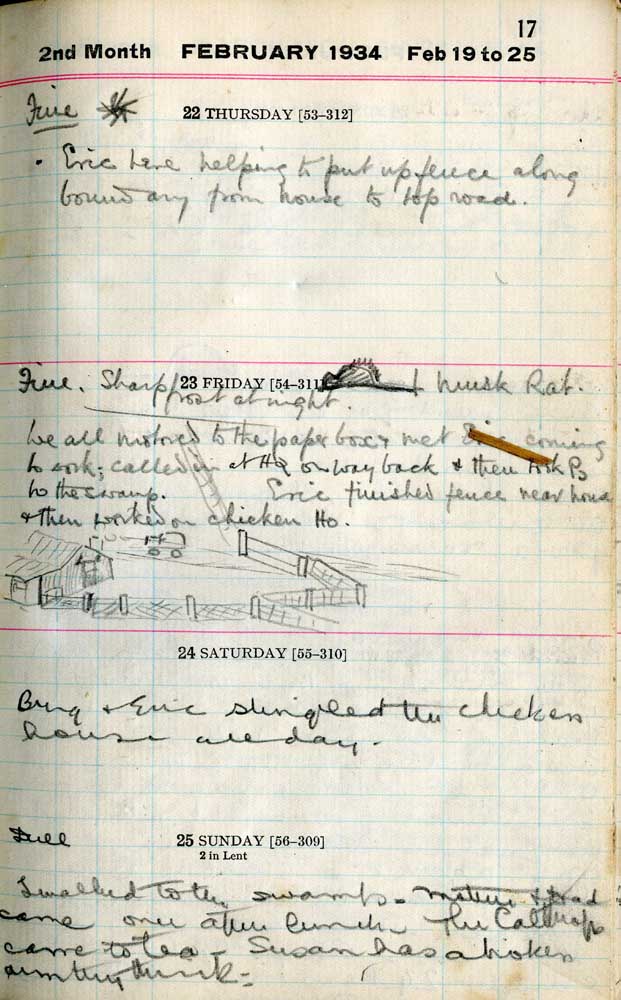 17
2nd Month FEBRUARY 1934 Feb 19 to 25
Fine
22 THURSDAY [53–312]
Eric here helping to put up fence along
boundary from house to top road.
Fine. Sharp frost at night. 23 FRIDAY [54–311] 1 Musk Rat.
We all motored to the paper box & met Eric coming
to work; called in at HQ on way back & then took
to the swamp. Eric finished fence near house
& then worked on chicken Ho.
24 SATURDAY [55–310]
& Eric shingled the chicken
house all day.
Dull
25 SUNDAY [56–309]
2 in Lent
I walked to the swamp – & Dad
came over after lunch – The
came to tea – Susan has a broken
arm they think –